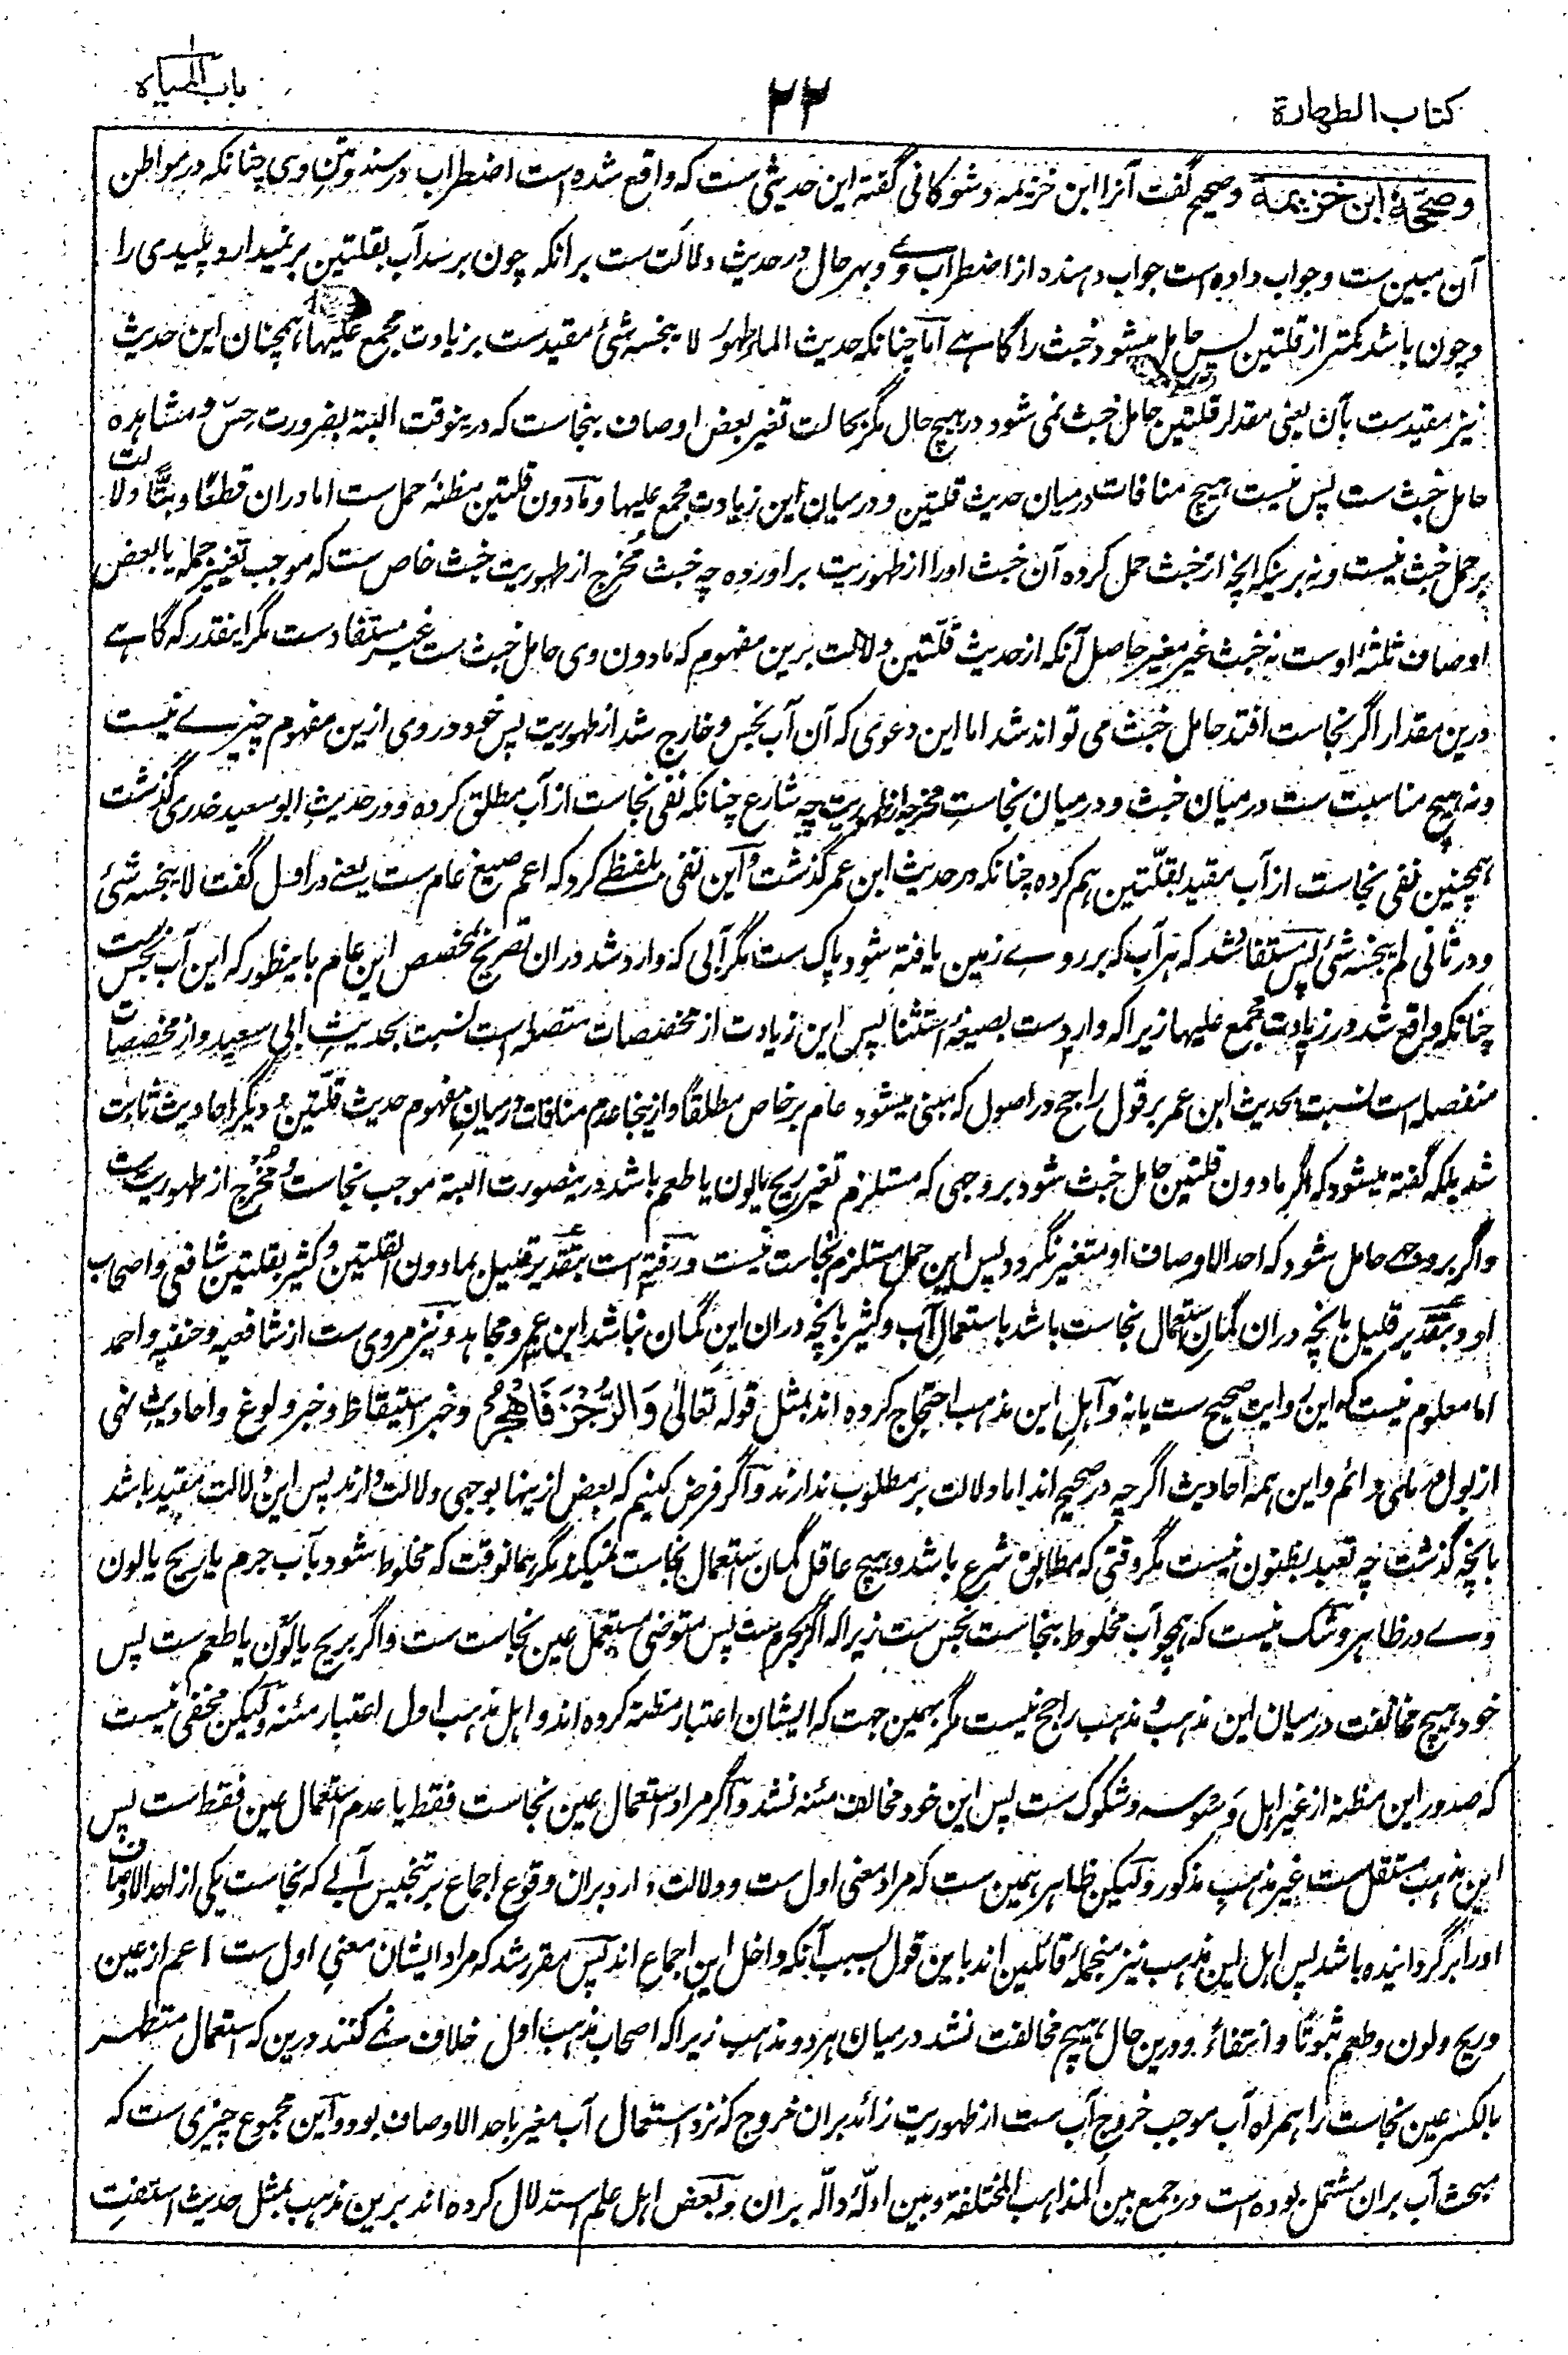 كتاب الطهارة
٢٢
باب المياه
وصححه ابن خزيمة وصحیح گفت آنرا ابن خزیمہ وشوکانی گفتہ این حدیثی ست کہ واقع شدہ است اضطراب در سند ومتن وی چنانکہ در مواطن
آن مبین ست وجواب دادہ است جواب دہندہ از اضطراب وے وبہر حال در حدیث دلالت ست برانکہ چون برسد آب بقلتین برنمیدارد پلیدی را
وچون باشد کمتر از قلتین پس حامل میشود خبث را گاہے اما چنانکہ حدیث الماء طہور لا ینجسہ شیٔ مقیدست بزیادت مجمع علیہا ہمچنان این حدیث
نیز مقیدست بآن یعنی مقدار قلتین حامل خبث نمی شود در ہیچ حال مگر بحالت تغیر بعض اوصاف بنجاست کہ درینوقت البتہ بضرورت حس ومشاہدہ
حامل خبث ست پس نیست ہیچ منافات درمیان حدیث قلتین ودرمیان این زیادت مجمع علیہا ومادون قلتین مظنۂ حمل ست اما دران قطعًا وبتًّا دلالت
بر حمل خبث نیست ونہ برینکہ انچہ از خبث حمل کردہ آن خبث اورا از طہوریت براوردہ چہ خبث مُخرج از طہوریت خبث خاص ست کہ موجب تغییر جملہ یا بعض
اوصاف ثلثہ اوست نہ خبث غیر مغیر حاصل آنکہ از حدیث قلتین دلالت برین مفہوم کہ مادون وی حامل خبث ست غیر مستفادست مگر اینقدر کہ گاہے
درین مقدار اگر نجاست افتد حامل خبث می تواند شد اما این دعوی کہ آن آب نجس وخارج شد از طہوریت پس خود در وی ازین مفہوم چیزے نیست
ونہ ہیچ مناسبت ست درمیان خبث ودرمیان نجاستِ مخرجہ از طہوریت چہ شارع چنانکہ نفی نجاست از آب مطلق کردہ ودر حدیثِ ابو سعید خدری گذشت
ہمچنین نفی نجاست از آب مقید بقلتین ہم کردہ چنانکہ در حدیث ابن عمر گذشت واین نفی بلفظے کرد کہ اعم صیغ عام ست یعنے در اول گفت لا ینجسہ شیٔ
ودر ثانی لم ینجسہ شیٔ پس مستفاد شد کہ ہر آب کہ بر روے زمین یافتہ شود پاک ست مگر آبی کہ وارد شد دران تصریح بخصص این عام باینطور کہ این آب نجس ست
چنانکہ واقع شد در زیادت مجمع علیہا زیراکہ وارد ست بصیغۂ استثنا پس این زیادت از مخصصات متصلہ است نسبت بحدیث ابی سعید واز مخصصات
منفصلہ است نسبت بحدیث ابن عمر بر قول راجح در اصول کہ مبنی میشود عام بر خاص مطلقًا وازینجا عدم منافات درمیانِ مفہوم حدیث قلتین ودیگر احادیث ثابت
شد بلکہ گفتہ میشود کہ اگر مادون قلتین حامل خبث شود بر وجہی کہ مستلزم تغیر ریح یا لون یا طعم باشد درینصورت البتہ موجب نجاست ومُخرج از طہوریت ست
واگر بر وجہے حامل شود کہ احد الاوصاف او متغیر نگردد پس این حمل مستلزم نجاست نیست ورفتہ است بتقدیر قلیل بمادون القلتین وکثیر بقلتین شافعی واصحاب
او وبتقدیر قلیل بانچہ دران گمانِ استعمال نجاست باشد باستعمالِ آب وکثیر بانچہ دران این گمان نباشد ابن عمر ومجاہد ونیز مروی ست از شافعیہ وحنفیہ واحمد
اما معلوم نیست کہ این روایت صحیح ست یا نہ واہلِ این مذہب احتجاج کردہ اند بمثل قولہ تعالیٰ وَالرُّجْزَ فَاهْجُرْ وخبر استیقاظ وخبر ولوغ واحادیث نہی
از بول در مائی دائم واین ہمہ احادیث اگرچہ در صحیح اند اما دلالت بر مطلوب ندارند واگر فرض کنیم کہ بعض ازینہا بوجہی دلالت دارند پس این دلالت مقید باشد
بانچہ گذشت چہ تعبد بظنون نیست مگر وقتی کہ مطابق شرع باشد وہیچ عاقل گمان استعمال نجاست نمیکند مگر ہمانوقت کہ مخلوط شود بآب جرم یا ریح یا لون
وے در ظاہر وشک نیست کہ ہمچو آب مخلوط بنجاست نجس ست زیراکہ اگر بجرم ست پس متوضی مستعمل عین نجاست ست واگر بریح یا لون یا طعم ست پس
خود ہیچ مخالفت درمیان این مذہب ومذہب راجح نیست مگر بہمین جہت کہ ایشان اعتبار مظنہ کردہ اند واہل مذہب اول اعتبار مئنہ ولیکن مخفی نیست
کہ صدور این مظنہ از غیر اہل وسوسہ وشکوک ست پس این خود مخالف مئنہ نشد واگر مراد استعمال عین نجاست فقط یا عدم استعمال عین فقط ست پس
این مذہب مستقل ست غیر مذہب مذکور ولیکن ظاہر ہمین ست کہ مراد معنی اول ست ودلالت دارد بران وقوع اجماع بر تنجیس آبے کہ نجاست یکی از احد الاوصاف
اورا برگردانیدہ باشد پس اہل این مذہب نیز منجملۂ قائلین اند باین قول بسبب آنکہ داخل این اجماع اند پس مقرر شد کہ مراد ایشان معنی اول ست اعم از عین
وریح ولون وطعم ثبوتًا وانتفاءً ودرین حال ہیچ مخالفت نشد درمیان ہر دو مذہب زیراکہ اصحاب مذہب اول خلاف نمے کنند درین کہ استعمال متطہر
بالکسر عین نجاست را ہمراہ آب موجب خروج آب ست از طہوریت زائد بران خروج کہ نزد استعمال آب مغیر باحد الاوصاف بود واین مجموع چیزی ست کہ
مبحث آب بران مشتمل بودہ است در جمع بین المذاہب المختلفۃ وبین ادلۂ دالہ بران وبعض اہل علم استدلال کردہ اند برین مذہب بمثل حدیث استفتِ